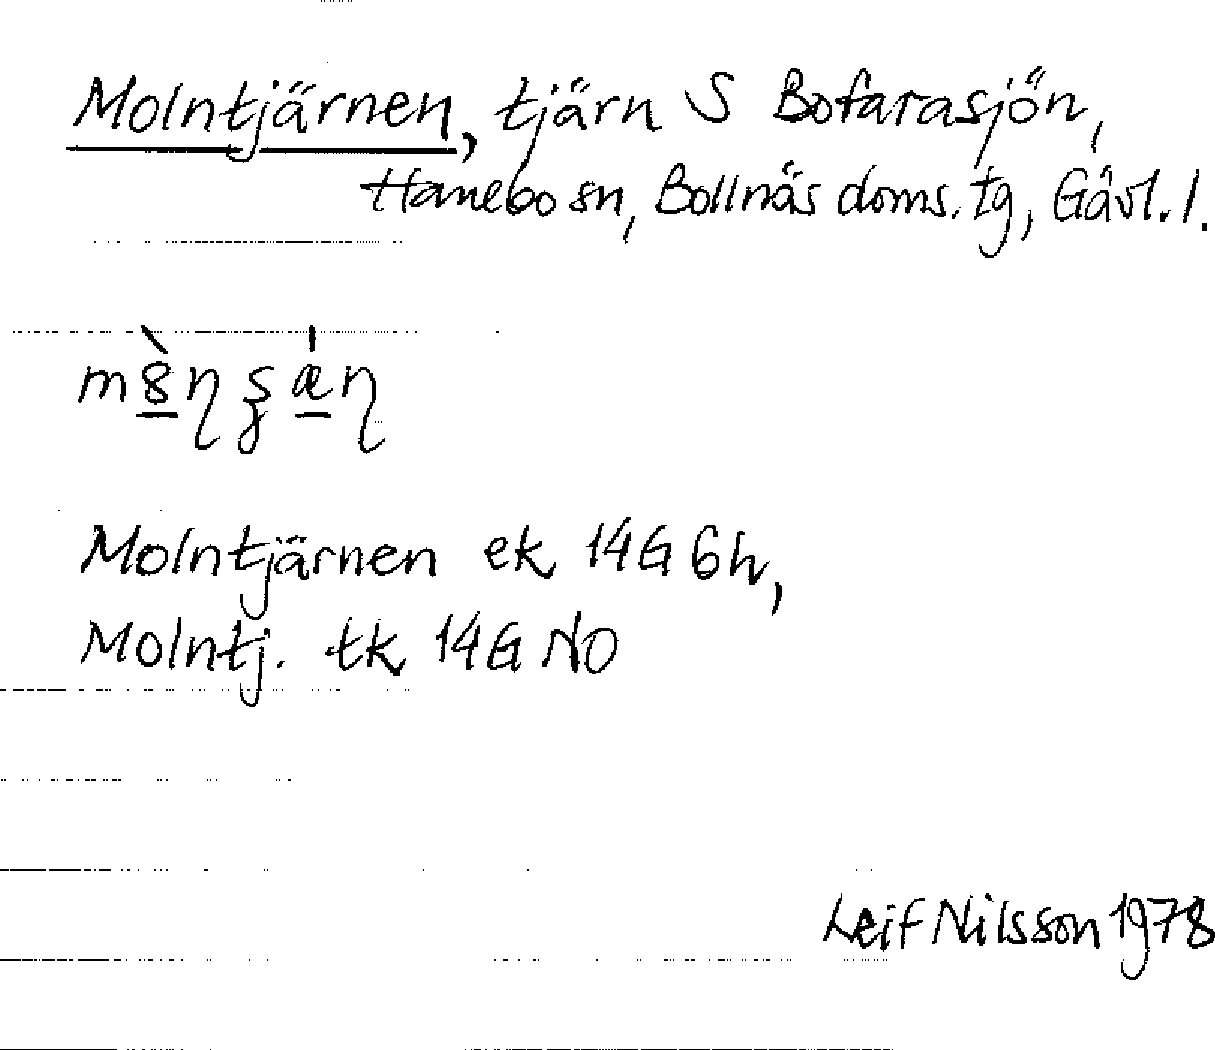 Molntjärnen, tjärn S Bofarasjön,
Hanebo sn, Bollnäs doms. tg, Gävl. l.
Molntjärnen ek 14G 6h,
Molntj. tk 14G NO
Leif Nilsson 1978